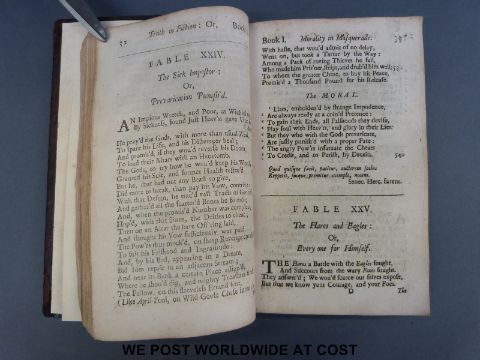 52 Truth in Fiction: Or, Book
FABLE XXIV.
The Sick Impostor:
Or,
Prevarication Punish'd.
AN Impious Wretch, and Poor, as Wicked
By Sickness, found Just Heav'n
He pray'd the Gods, with more than usual
To spare his Life, and his Distemper heal;
And promis'd, if they wou'd reverse his
To load their Altar with an Hecatomb.
The Gods, to try how he wou'd keep his Word,
Granted his Suit, and former Health restor'd
But he, that had not any Beast to give,
Did more to break, than pay his Vow,
With that Design, he
And gather'd all the
And, when the
Hop'd, with that Sham, the Deities to cheat,
Them on an Altar the bare Off'ring laid
And thought his Vow sufficiently was paid
The Pow'rs thus mock'd, on sharp Revenge
To suit his Falshood and Ingratitude:
And, by his Bed, appearing in a Dream,
Bid him repair to an adjacent
And near its Bank a certain Place assign'd,
Where he should dig, and mighty Treasure
The Fellow, on this
(Like April-Fool, on Wild Goose Chase
Book I. Morality in Masquerade.
With haste, that wou'd admit of no delay,
Went on, but took a Tartar by the Way;
Among a Pack of roving Thieves he fell,
Who made him Pris'ner, stript, and drub'd him well
To whom the greater Cheat, to buy his Peace,
Promis'd a Thousand Pound for his Release.
The MORAL.
Lies, embolden'd by strange Impudence,
Are always ready at a coin'd Pretence:
To gain their Ends, all Falshoods they devise,
Play foul with Heav'n, and glory in their Lies:
But they who with the Gods prevaricate,
Are justly punish'd with a proper Fate:
The angry Pow'rs infatuate the Cheats
To Credit, and to Perish, by Deceits. 540
Quod quisque fecit, patitur, auctorem scelus
Repetit, suoque premitur exemplo, nocens.
Senec. Herc. furens.
FABLE XXV.
The Hares and Eagles:
Or,
Every one for Himself.
THE Hares a Battle with the Eagles fought,
And Succours from the wary Foxes sought.
They answer'd; We wou'd se your sides espouse,
But that we know your Courage, and your Foes.
D The
WE POST WORLDWIDE AT COST